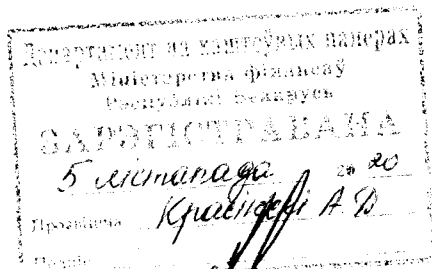 Дэпартамент па каштоўных паперах
Міністэрства фінансаў
Рэспублікі Беларусь
ЗАРЭГІСТРАВАНА
5 лістапада 20 20
Прозвішча А Д